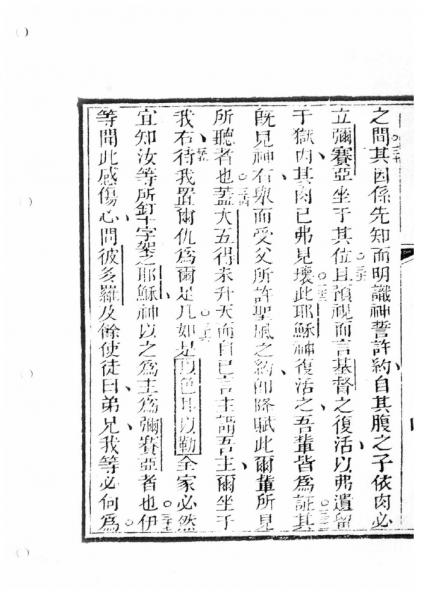 之間其因係先知而明識神誓許約自其腹之子依肉必
立彌賽亞坐于其位且預視而言基督之復活以弗遺留
于獄內其肉已弗見壞此耶穌神復活之吾輩皆為証其
既見神右舉而受父所許聖風之約即降賦此爾輩所見
所聽者也蓋大五得未升天而自己言主謂吾主爾坐于
我右待我置爾仇為爾足几如是以色耳以勒全家必然
宜知汝等所釘十字架之耶穌神以之為主為彌賽亞者也伊
等聞此感傷心問彼多羅及餘使徒曰弟兄我等必何為